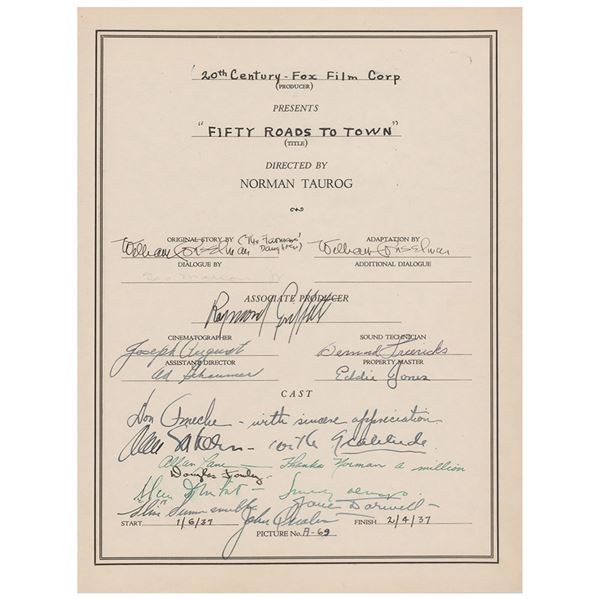 20th Century-Fox Film Corp
(PRODUCER)
PRESENTS
"FIFTY ROADS TO TOWN"
(TITLE)
DIRECTED BY
NORMAN TAUROG
ORIGINAL STORY BY ("The Farmers' Daughter") ADAPTATION BY
William Conselman William Conselman
DIALOGUE BY ADDITIONAL DIALOGUE
ASSOCIATE PRODUCER
Raymond Griffith
CINEMATOGRAPHER SOUND TECHNICIAN
Joseph August Bernard Freericks
ASSISTANT DIRECTOR PROPERTY MASTER
Ed Eddie Jones
CAST
Don Ameche – with sincere appreciation.
with Gratitude.
Allan Lane – Thanks Norman a million
Douglas Fowley
Sincerely always
"Slim" Summerville Jane Darwell –
John Qualen
START 1/6/37 FINISH 2/4/37
PICTURE No. A-69